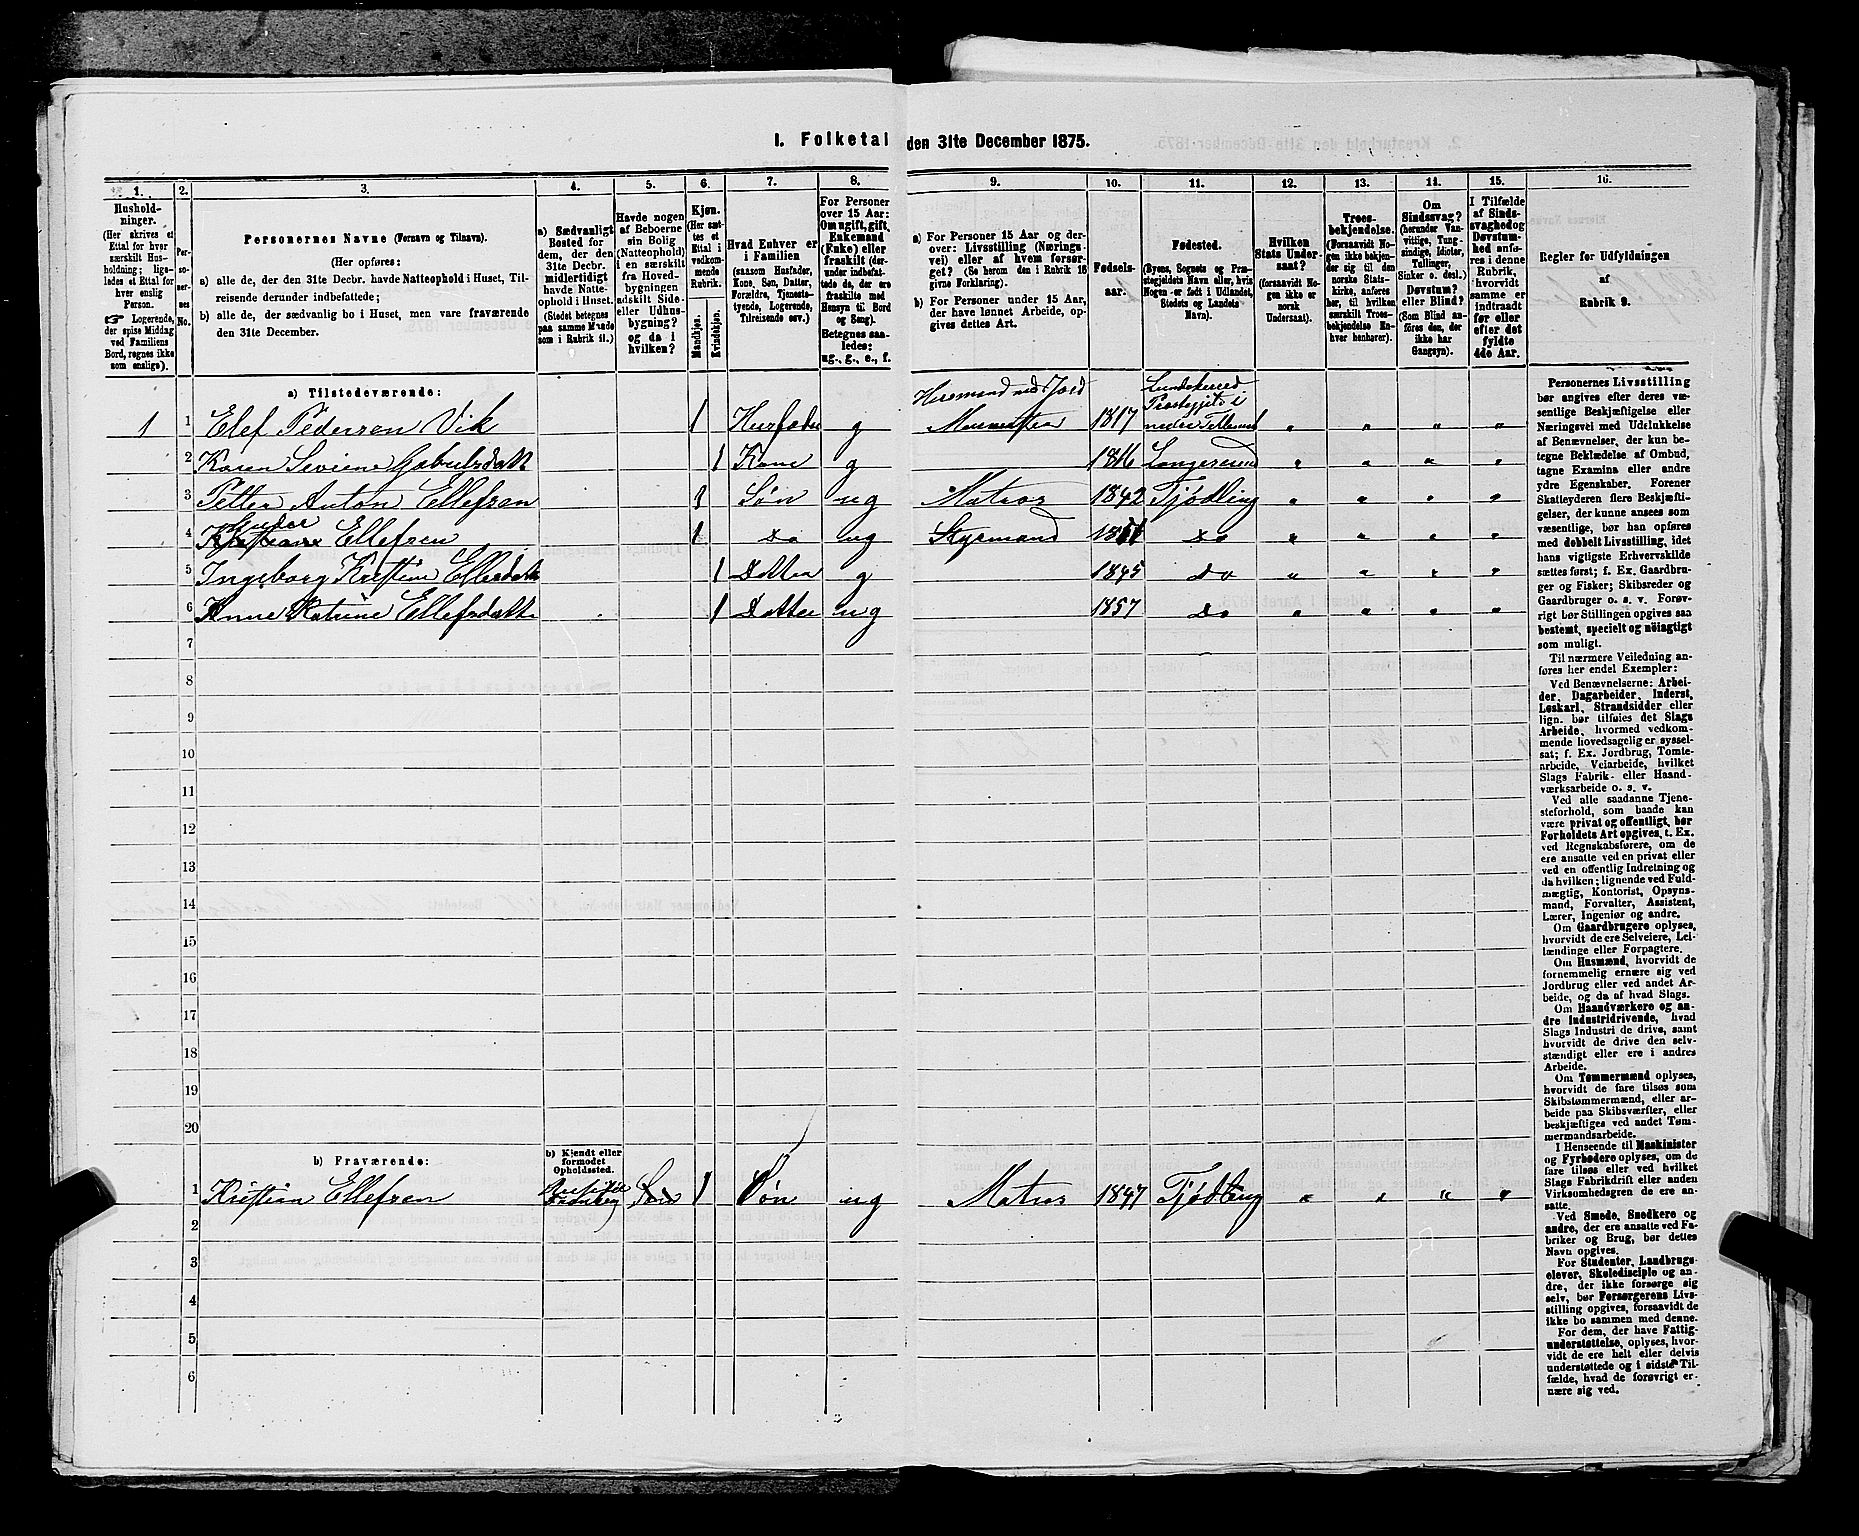 1. Folketal den 31te December 1875.
1. 2. 3. 4. 5. 6. 7. 8. 9. 10. 11. 12. 13. 14. 15. 16.
Hushold-
ninger.
(Her skrives et
Ettal for hver
særskilt Hus-
holdning; lige-
ledes et Ettal for
hver enslig
Person.
☞ Logerende,
der spise Middag
ved Familiens
Bord, regnes ikke
som enslige).
Per-
so-
ner-
nes
No.
Personernes Navne (Fornavn og Tilnavn).
(Her opføres:
a) alle de, der den 31te Decbr. havde Natteophold i Huset, Til-
reisende derunder indbefattede;
b) alle de, der sædvanlig bo i Huset, men vare fraværende
den 31te December.
a) Sædvanligt
Bosted for
dem, der den
31te Decbr.
midlertidigt
havde Natte-
ophold i Huset.
(Stedet betegnes
paa samme Maade
som i Rubrik 11.)
Havde nogen
af Beboerne
sin Bolig
(Natteophold)
i en særskilt
fra Hoved-
bygningen
adskilt Side-
eller Udhus-
bygning?
og da i
hvilken?
Kjøn.
(Her sæt-
tes et
Ettal i
vedkom-
mende
Rubrik.
Mandkjøn.
Kvindekjøn.
Hvad Enhver er
i Familien
(saasom Husfader,
Kone, Søn, Datter,
Forældre, Tjeneste-
tyende, Logerende,
Tilreisende osv.)
For Personer
over 15 Aar:
Om ugift, gift,
Enkemand
(Enke) eller
fraskilt (der-
under indbefat-
tede de, der ere
fraskilte med
Hensyn til Bord
og Seng).
Betegnes saa-
ledes:
ug., g., e., f.
a) For Personer 15 Aar og der-
over: Livsstilling (Nærings-
vei) eller af hvem forsør-
get? (Se herom den i Rubrik 16
givne Forklaring).
b) For Personer under 15 Aar,
der have lønnet Arbeide, op-
gives dettes Art.
Fødsels-
aar.
Fødested.
(Byens, Sognets og Præ-
stegjeldets Navn eller, hvis
Nogen er født i Udlandet,
Stedets og Landets
Navn).
Hvilken
Stats Under-
saat?
(forsaavidt No-
gen ikke er
norsk
Undersaat).
Troes-
bekjendelse.
(Forsaavidt No-
gen ikke bekjen-
der sig til den
norske Stats-
kirke, anføres
her, til hvilken
særskilt Troes-
bekjendelse En-
hver henhører).
Om
Sindssvag?
(herunder Van-
vittige, Tung-
sindige, Idioter,
Tullinger,
Sinker o. desl.)
Døvstum?
eller Blind?
(Som Blind an-
føres den, der
ikke har
Gangsyn).
I Tilfælde
af Sinds-
svaghed og
Døvstum-
hed anfø-
res i denne
Rubrik,
hvorvidt
samme er
indtraadt
før eller
efter det
fyldte
4de Aar.
Regler for Udfyldningen
af
Rubrik 9.
a) Tilstedeværende:
1 1 Elef Pedersen Vik 1 Husfader g Husmand med Jord 1817 nedre " " "
2 Karen Seviene 1 Kone g 1816 Langesund " " " "
3 Petter Anton Ellefsen 1 Søn ug Matros 1842 Tjødling " " " "
4 Ellefsen 1 do ug Styrmand do " " " "
5 Ingeborg Kristine 1 Datter g 1845 do " " " "
6 Anne Katrine Ellefsdatt 1 Datter ug 1857 do " " " "
7
8
9
10
11
12
13
14
15
16
17
18
19
20
b) Fraværende:
b) Kjendt eller
formodet
Opholdssted.
1 Kristian Ellefsen 1 Søn ug Matros 1847 Tjødling " " " "
2
3
4
5
6
Personernes Livsstilling
bør angives efter deres væ-
sentlige Beskjæftigelse eller
Næringsvei med Udelukkelse
af Benævnelser, der kun be-
tegne Beklædelse af Ombud,
tagne Examina eller andre
ydre Egenskaber. Forener
Skatteyderen flere Beskjæfti-
gelser, der kunne ansees som
væsentlige, bør han opføres
med dobbelt Livsstilling, idet
hans vigtigste Erhvervskilde
sættes først; f. Ex. Gaardbru-
ger og Fisker; Skibsreder og
Gaardbruger o. s. v. Forøv-
rigt bør Stillingen opgives saa
bestemt, specielt og nöiagtigt
som muligt.
Til nærmere Veiledning an-
føres her endel Exempler:
Ved Benævnelserne: Arbei-
der, Dagarbeider, Inderst,
Løskarl, Strandsidder eller
lign. bør tilføies det Slags
Arbeide, hvormed vedkom-
mende hovedsagelig er syssel-
sat; f. Ex. Jordbrug, Tomte-
arbeide, Veiarbeide, hvilket
Slags Fabrik- eller Haand-
værksarbeide o. s. v.
Ved alle saadanne Tjene-
steforhold, som baade kan
være privat og offentligt, bør
Forholdets Art opgives, t. Ex.
ved Regnskabsførere, om de
ere ansatte ved en privat eller
ved en offentlig Indretning og
da hvilken; lignende ved Fuld-
mægtig, Kontorist, Opsyns-
mand, Forvalter, Assistent,
Lærer, Ingeniør og andre.
Om Gaardbrugere oplyses,
hvorvidt de ere Selveiere, Lei-
lændinge eller Forpagtere.
Om Husmænd, hvorvidt de
fornemmelig ernære sig ved
Jordbrug eller ved andet Ar-
beide, og da af hvad Slags.
Om Haandværkere og an-
dre Industridrivende, hvad
Slags Industri de drive, samt
hvorvidt de drive den selv-
stændigt eller ere i andres
Arbeide.
Om Tømmermænd oplyses,
hvorvidt de fare tilsøs som
Skibstømmermænd, eller ar-
beide paa Skibsværfter, eller
beskjæftiges ved andet Tøm-
mermandsarbeide.
I Henseende til Maskinister
og Fyrbødere oplyses, om de
fare tilsøs eller ved hvilket
Slags Fabrikdrift eller anden
Virksomhedsgren de ere an-
satte.
Ved Smede, Snedkere og
andre, der ere ansatte ved Fa-
briker og Brug, bør dettes
Navn opgives.
For Studenter, Landbrugs-
elever, Skoledisciple og an-
dre, der ikke forsørge sig
selv, bør Forsørgerens Livs-
stilling opgives, forsaavidt de
ikke bo sammen med denne.
For dem, der have Fattig-
understøttelse, oplyses, hvor-
vidt de ere helt eller delvis
understøttede og i sidste Til-
fælde, hvad de forøvrigt er-
nære sig ved.